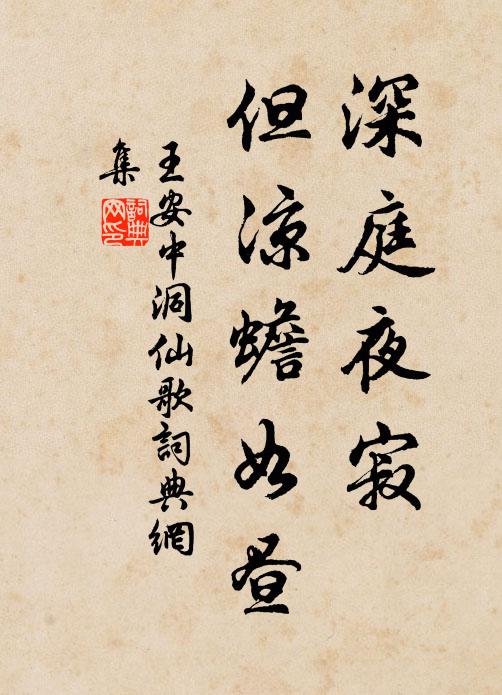 深庭夜寂
但凉蟾如昼
王安中洞仙歌詞典網
集
詞典网印